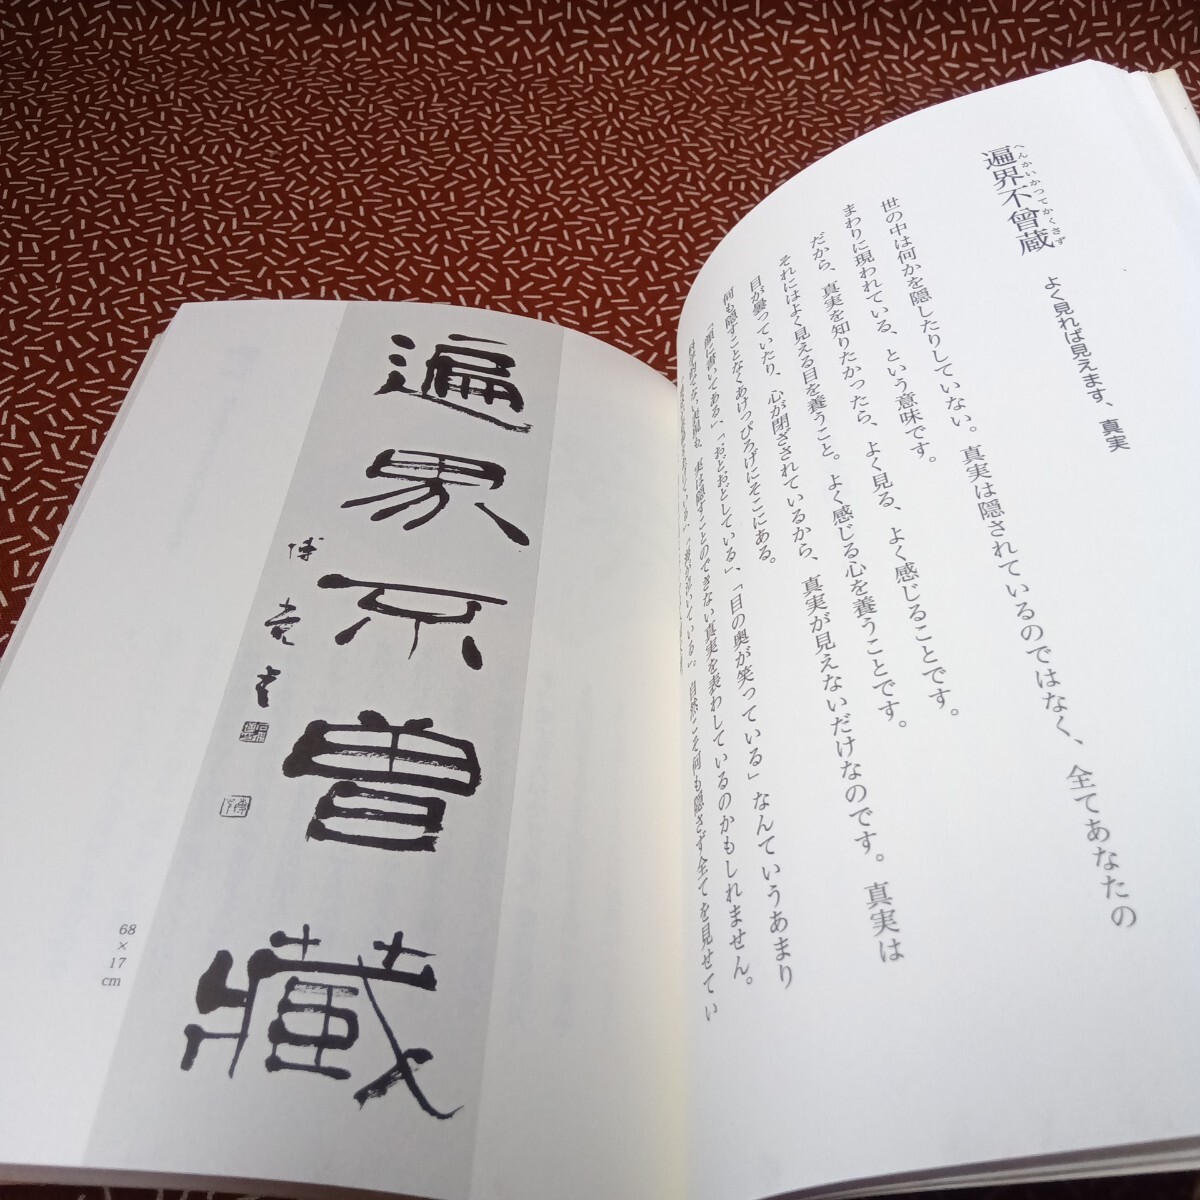 遍界不曾蔵
へんかいかつてかくさず
よく見れば見えます、真実
世の中は何かを隠したりしていない。真実は隠されているのではなく、全てあなたの
まわりに現われている、という意味です。
だから、真実を知りたかったら、よく見る、よく感じることです。
それにはよく見える目を養うこと。よく感じる心を養うことです。
目が曇っていたり、心が閉ざされているから、真実が見えないだけなのです。真実は
何も隠すことなくあけっぴろげにそこにある。
「顔に書いてある」、「おどおどしている」、「目の奥が笑っている」なんていうあまり
実は隠すことのできない真実を表わしているのかもしれません。
自然こそ何も隠さず全てを見せてい
遍界不曾藏
68
×
17
cm